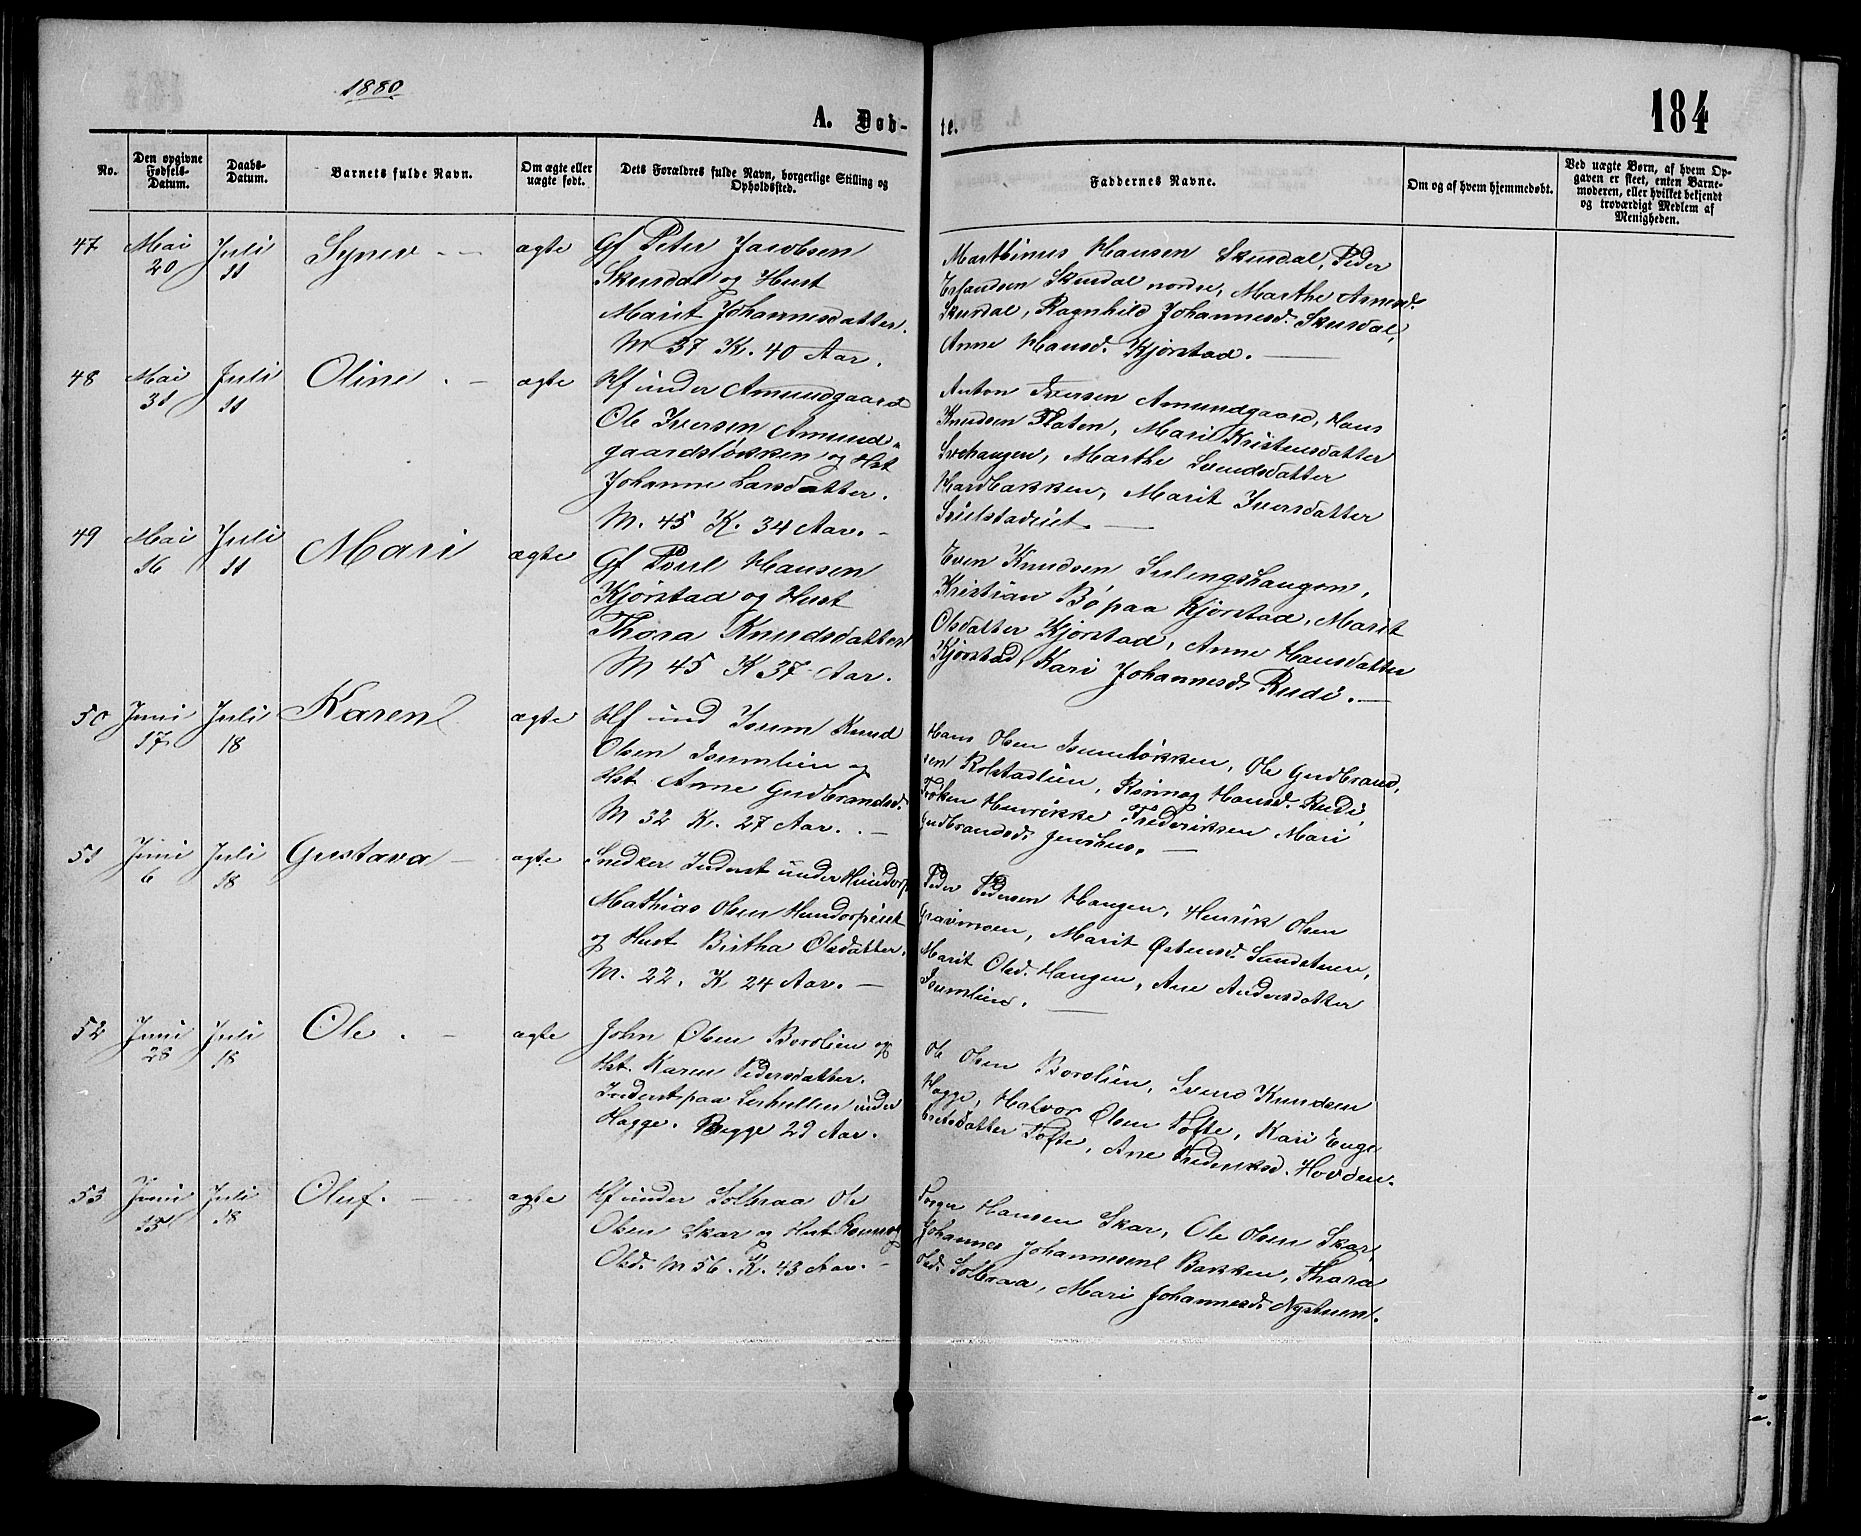 1880
184
A. Døb-
te.
No.
Den opgivne Fødsels-Datum.
Daabs-Datum.
Barnets fulde Navn.
Om ægte eller uægte født.
Dets Forældres fulde Navn, borgerlige Stilling og Opholdssted.
Faddernes Navne.
Om og af hvem hjemmedøbt.
Ved uægte Børn, af hvem Opgaven er skeet, enten Barnemoderen, eller hvilket bekjendt og troværdigt Medlem af Menigheden.
47 Mai 20 Juli 11 Synev ægte
Gf Peter Jacobsen
Skurdal og Hust
Marit Johannesdatter.
M 37 K. 40 Aar.
Marthinus Hansen Skurdal, Peder
Erlandsen Skurdal nordre, Marthe Arnesd.
Skurdal, Ragnhild Johannesd. Skurdal,
Anne Hansd. Kjørstad.
48 Mai 31 Juli 11 Oline ægte
Hf under Amundgaard
Ole Iversen Amund-
gaardsløkken og Hst
Johanne Larsdatter.
M. 45 K. 34 Aar.
Anton Iversen Amundgaard, Hans
Knudsen Flaten, Mari Kristensdatter
Marthe Svendsdatter
Hardbakken, Marit Iversdatter
49 Mai 16 Juli 11 Mari ægte
Gf Poul Hansen
Kjørstad og Hust
Thora Knudsdatter
M 45 K 37 Aar.
Even Knudsen Sulingshaugen,
Kristian Bø paa Kjørstad, Marit
Olsdatter Kjørstad, Anne Hansdatter
Kjørstad, Kari Johannesd. Rudi.
50 Juni 17 Juli 18 Karen ægte
Hf und Isum Knud
Olsen Isumlien og
Hst. Anne Gudbrandsd.
M 32 K. 27 Aar.
Hans Olsen Isumløkken, Ole Gudbrand-
sen Kolstadlien, Rønnog Hansd. Rudi,
Frøken Henrikke Frederiksen Mari
Gudbrandsd.
51 Juni 6 Juli 18 Gustava ægte
Snedker Inderst under Hundorp
Mathias Olsen Hundorpeiet
og Hust Birtha Olsdatter.
M. 22. K 24 Aar.
Peder Pedersen Haugen, Henrik Olsen
Gravmoen, Marit Østensd. Sundstuen,
Marit Olsd. Haugen, Ane Andersdatter
Isumlien.
52 Juni 28 Juli 18 Ole ægte
John Olsen Borolien og
Hst. Karen Pedersdatter.
Inderst paa under
Hagge. Begge 29 Aar.
Ole Olsen Borolien, Svend Knudsen
Hagge, Halvor Olsen Tofte, Kari Enge-
bretsdatter Tofte, Ane Frederiksd. Hovden.
53 Juni 13 Juli 18 Oluf. ægte
Hf under Solbraa Ole
Olsen Skar og Hust Rønnog
Olsd. M 56. K. 43 Aar.
Hansen Skar, Ole Olsen Skar,
Johannes Johannesen Bakken, Thora
Olsd. Solbraa, Mari Johannesd. Nystuen.